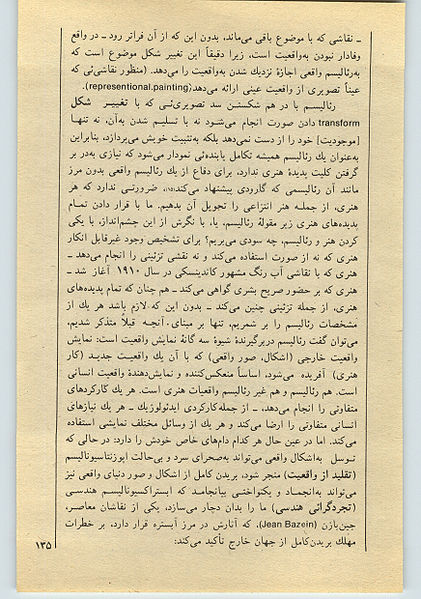 ـ نقاشی که با موضوع باقی می‌ماند، بدون این که از آن فراتر رود ـ در واقع
وفادار نبودن به‌واقعیت است، زیرا دقیقاً این تغییر شکل موضوع است که
به‌رئالیسم واقعی اجازهٔ نزدیك شدن به‌واقعیت را می‌دهد. (منظور نقاشی‌ئی که
عیناً تصویری از واقعیت عینی ارائه می‌دهد(representional.painting).
رئالیسم با در هم شکستن سد تصویری‌ئی که با تغییـر شکل
transform دادن صورت انجام می‌شود نه با تسلیـم شدن به‌آن، نه تنهـا
[موجودیت] خود را از دست نمی‌دهد بلکه به‌تثبیت خویش می‌پردازد، بنابراین
به‌عنوان یك رئالیسم همیشه تکامل یابنده‌ئی نمودار می‌شود که نیازی به‌در بر
گرفتن کلیت پدیدهٔ هنری ندارد، برای دفاع از یك رئالیسم واقعی بدون مرز
مانند آن رئالیسمی که گارودی پیشنهاد می‌کند، ضرورتـی ندارد که هر
هنری، از جملـه هنر انتزاعی را تحویل آن بدهیم. ما با قرار دادن تمـام
پدیده‌های هنری زیر مقولهٔ رئالیسم، یا، با نگرش از این چشم‌انداز، با یکی
کردن هنر و رئالیسم، چه سودی می‌بریم؟ برای تشخیص وجود غیرقابل انکار
هنری که نه از صورت استفاده می‌کند و نه نقشی تزئینی را انجام می‌دهد ـ
هنری که با نقاشی آب رنگ مشهور کاندینسکی در سال ۱۹۱۰ آغاز شد ـ
هنری که بر حضور صریح بشری گواهی می‌کند ـ هم چنان که تمام پدیده‌های
هنری، از جمله تزئینی چنین می‌کند ـ بدون این که لازم باشد هر یك از
مشخصات رئالیسم را بر شمریم، تنها بر مبنای، آنچـه قبلاً متذکر شدیم،
می‌توان گفت رئالیسم دربرگیرندهٔ شیوهٔ سه گانهٔ نمایش واقعیت است: نمایش
واقعیت خارجی (اشکال، صور واقعی) که با آن یك واقعیـت جدیـد (کار
هنری) آفریده می‌شود، اساساً منعکس‌کننده و نمایش‌دهندهٔ واقعیت انسانی
است. هم رئالیسم و هم غیر رئالیسم واقعیات هنری است. هر یك کارکردهای
متفاوتی را انجام می‌دهد، ـ از جمله‌کارکردی ایدئولوژیك ـ هر یك نیازهای
انسانی متفاوتی را ارضا می‌کند و هر یك از وسائل مختلف نمایشی استفاده
می‌کند. اما در عین حال هر کدام دام‌های خاص خودش را دارد: در حالی که
توسل به‌اشکال واقعی می‌تواند به‌صحرای سرد و بی‌حالت ایوزنتاسیونالیسم
(تقلید از واقعیت) منجر شود، بریدن کامل از اشکال و صور دنیای واقعی نیز
می‌تواند به‌انجمـاد و یکنواختـی بیانجامـد که آبستراکسیونالیسـم هندسـی
(تجردگرائی هندسی) ما را بدان دچار می‌سازد، یکی از نقاشان معاصـر،
جین‌بازن (Jean Bazein)، که آثارش در مرز آبستره قرار دارد، بر خطرات
مهلك بریدن‌کامل از جهان خارج تأکید می‌کند:
۱۳۵